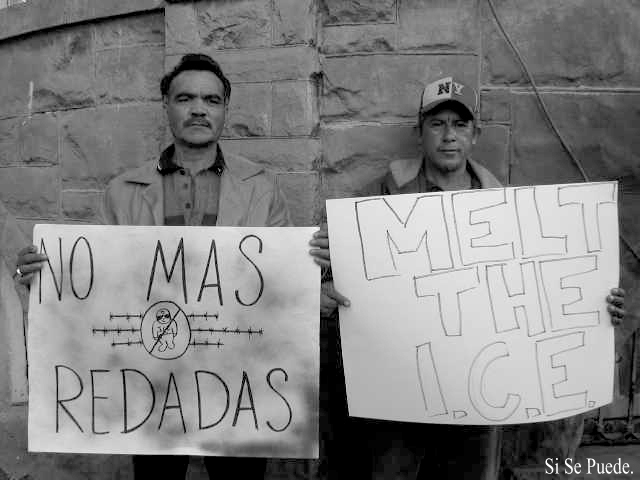 NO MAS
REDADAS
NY
MELT
THE
I.C.E.
Si Se Puede.